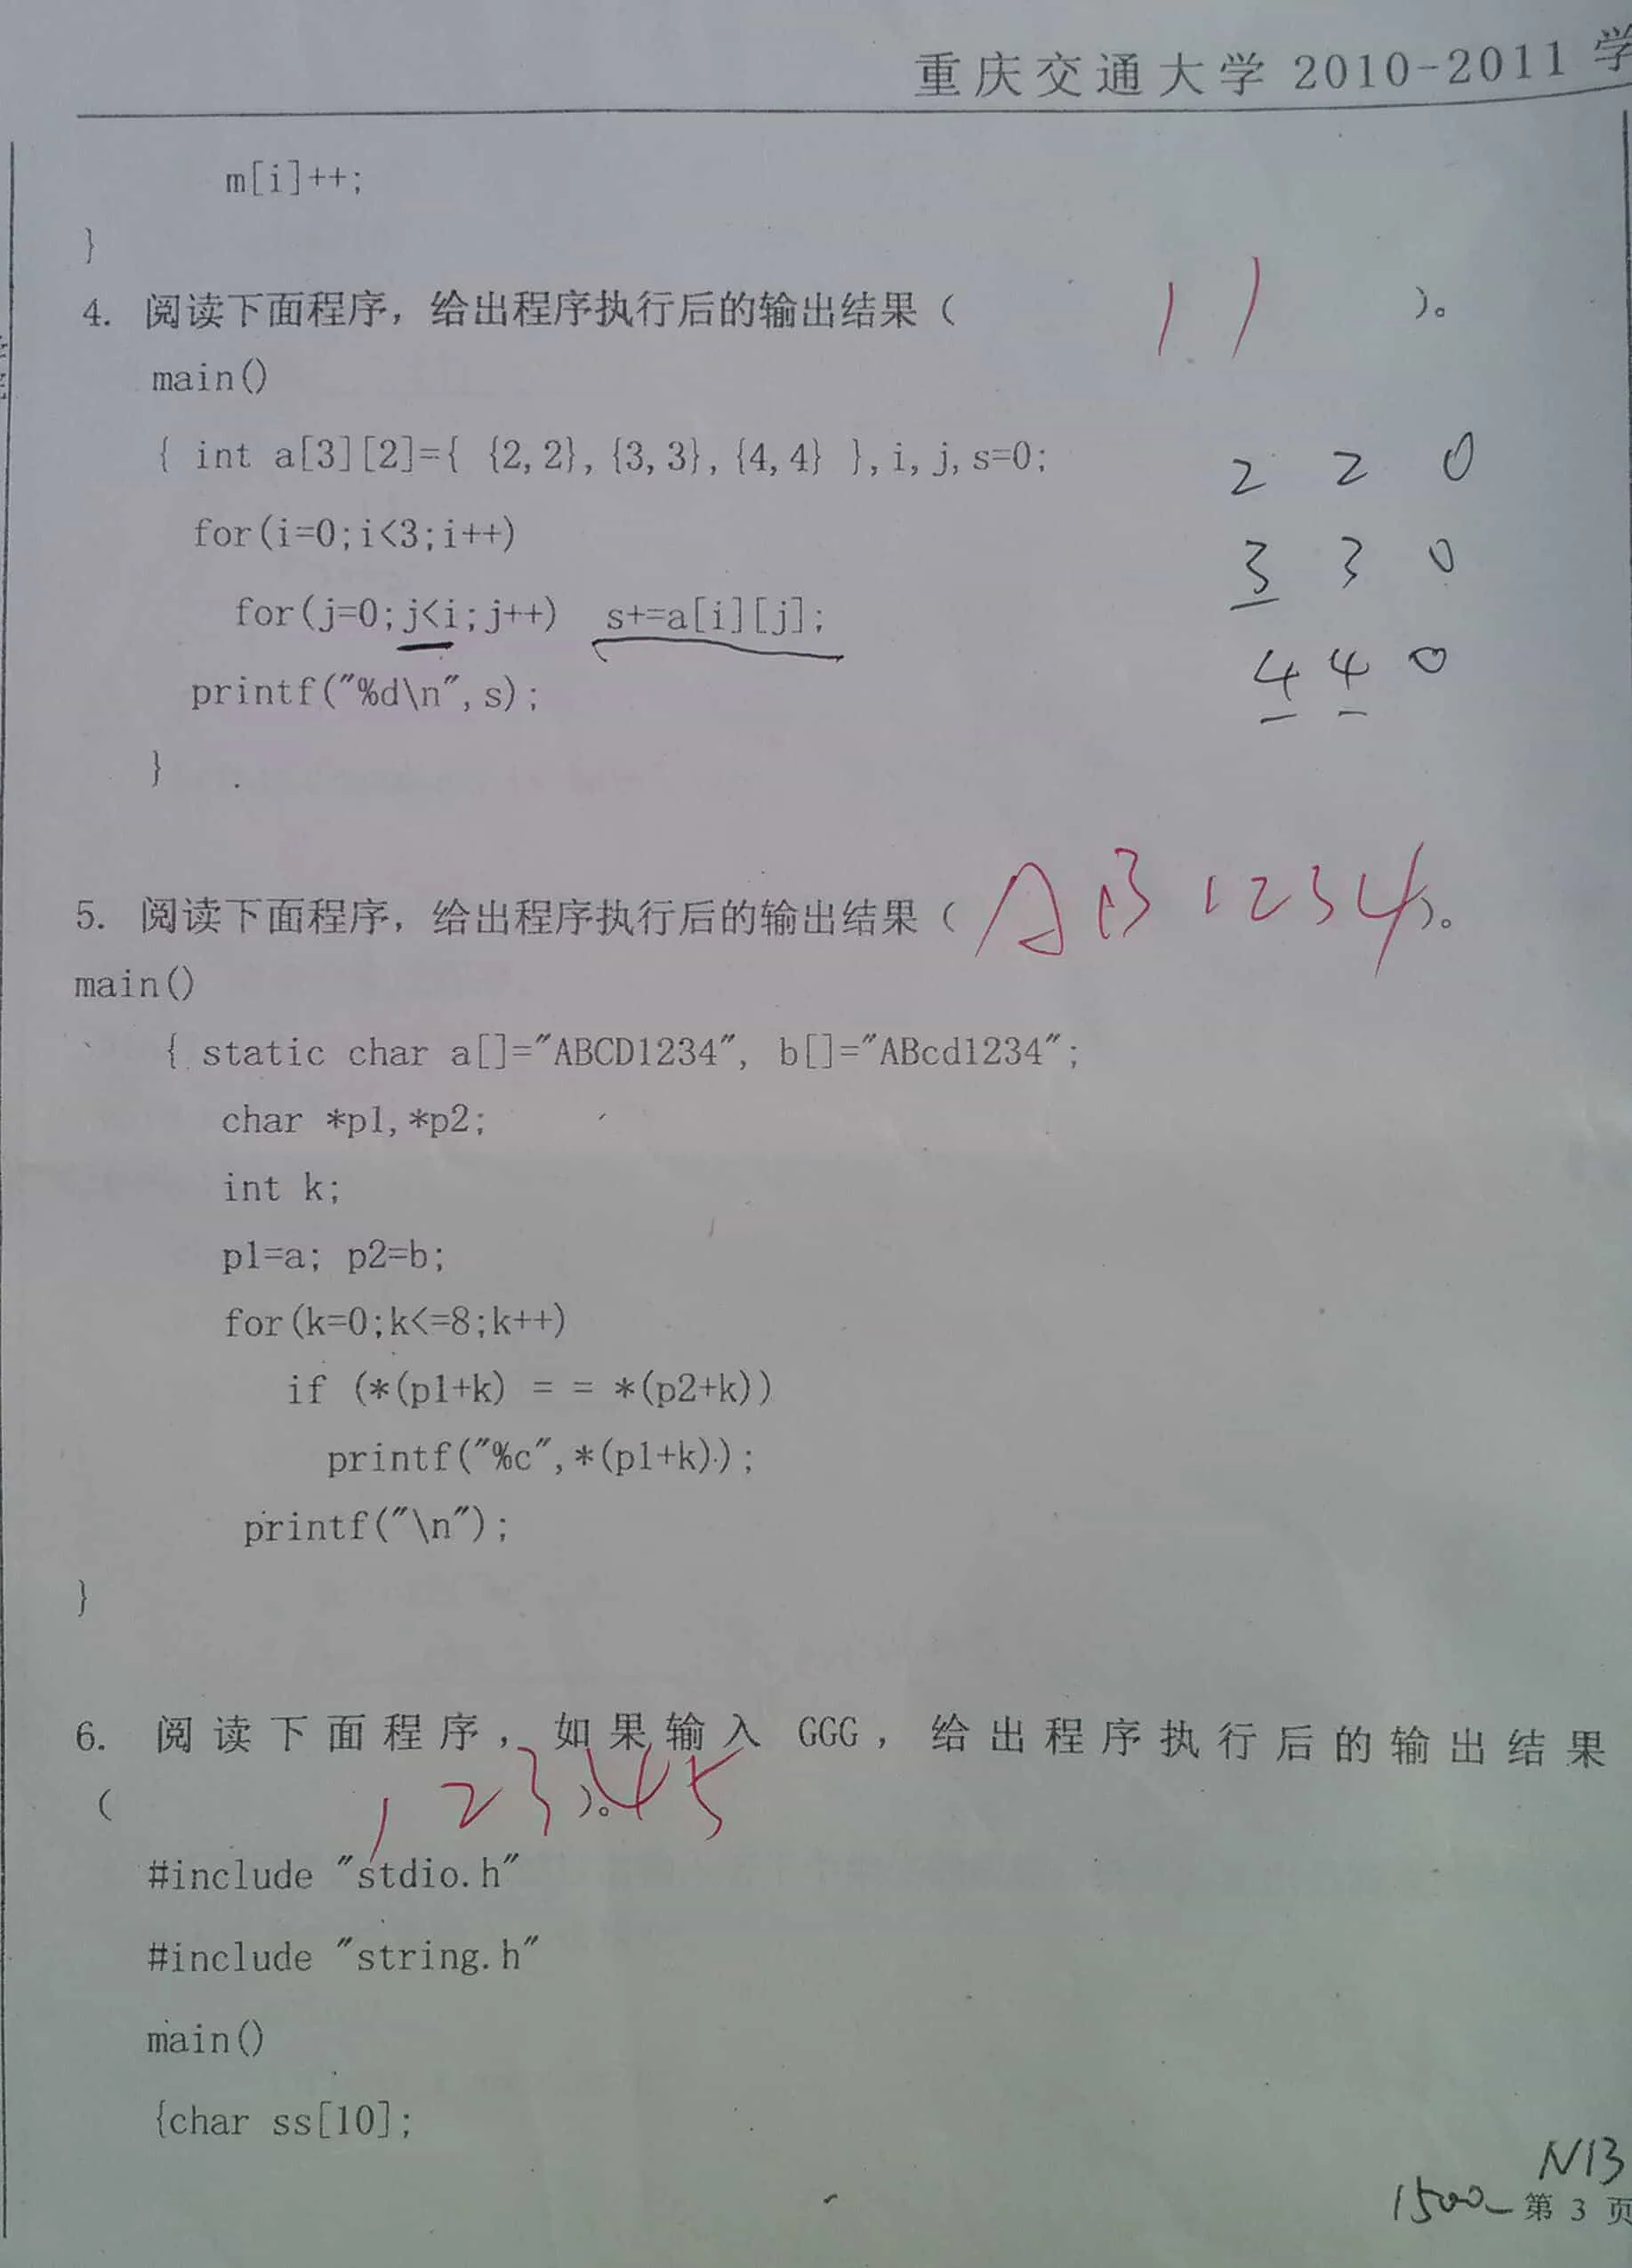 重庆交通大学 2010-2011 学
m[i]++;
}
4. 阅读下面程序，给出程序执行后的输出结果（ 11 ）。
main()
{ int a[3][2]={ {2,2},{3,3},{4,4} },i,j,s=0;
2 2 0
for(i=0;i<3;i++)
3 3 0
for(j=0;j<i;j++) s+=a[i][j];
4 4 0
printf("%d\n",s);
}
5. 阅读下面程序，给出程序执行后的输出结果（ AB1234 ）。
main()
{ static char a[]="ABCD1234", b[]="ABcd1234";
char *p1,*p2;
int k;
p1=a; p2=b;
for(k=0;k<=8;k++)
if (*(p1+k) = = *(p2+k))
printf("%c",*(p1+k));
printf("\n");
}
6. 阅读下面程序，如果输入 GGG，给出程序执行后的输出结果
（ 12345 ）。
#include "stdio.h"
#include "string.h"
main()
{char ss[10];
N13
1500
第 3 页